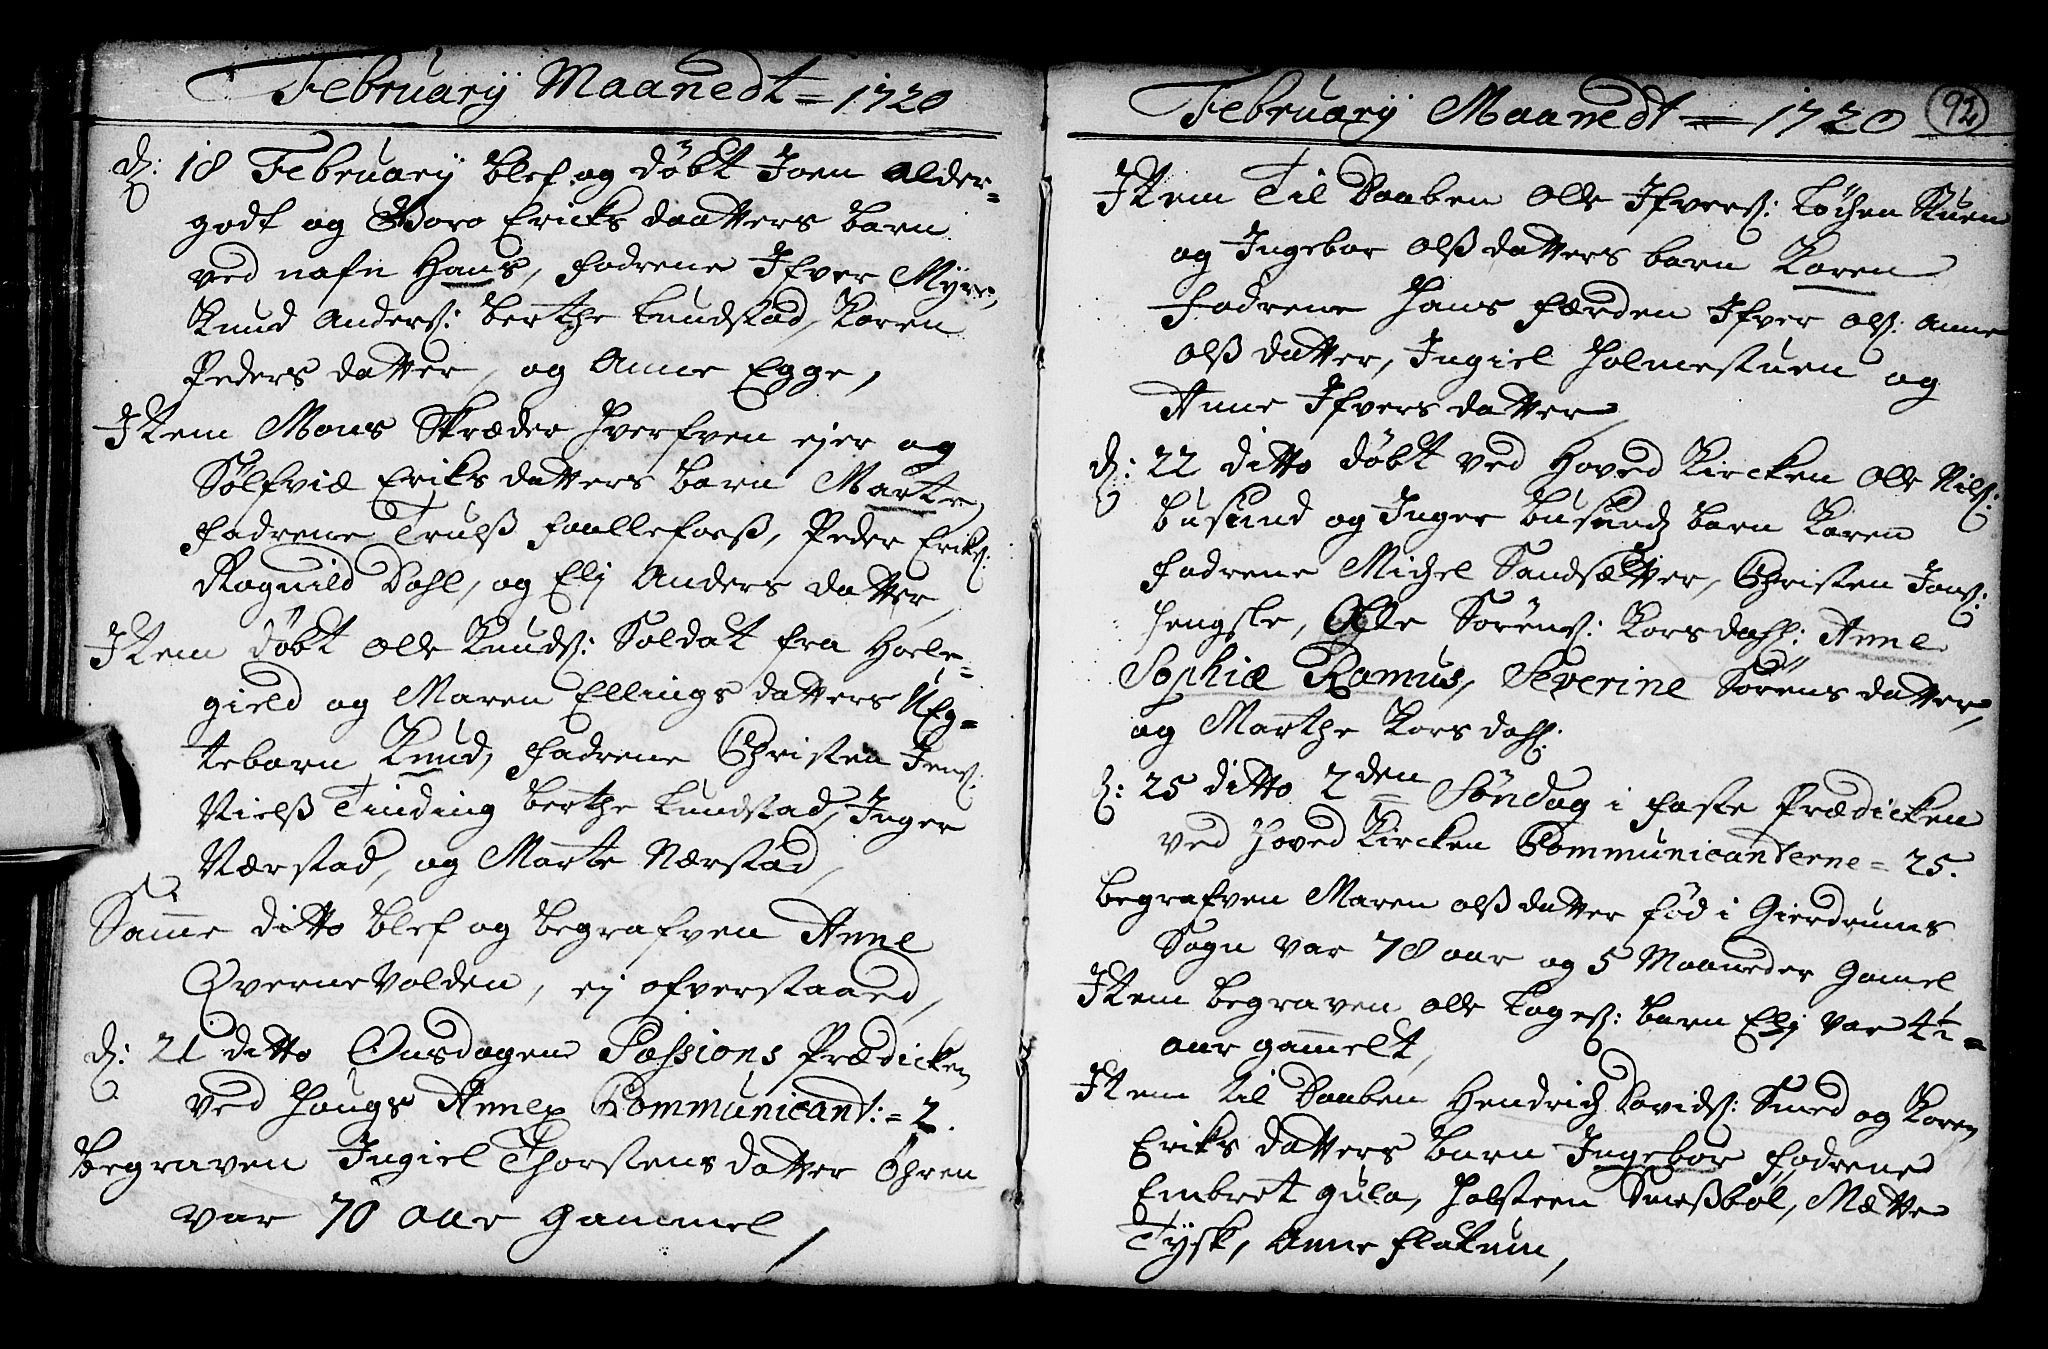 Februarij Maanedt = 1720
d: 18 Februarij blef og døbt Joen Alder=
godt og Goro Ericks daatters barn
ved nafn Hans, fadrene Ifver Myre,
Knud Anders: berthe Lundstad, Karen
Peders datter, og Anne Egge,
Item Mons Skræder Hverfven ejer og
Sølfviæ Eriks datters barn Marte,
fadrene Trulß faallefoß, Peder Eriks:
Ragnild Dahl, og Elj Anders datter,
Item døbt Olle Knuds: Soldat fra Hole=
gield og Maren Ellings datters Ueg=
tebarn Knud, fadrene Christen Jens:
Nielß Tinding berthe Lundstad, Inger
Nærstad, og Marte Nærstad,
Samme ditto blef og begrafven Anne
Qvernevolden, ej ofverstaaed,
d: 21 ditto Onsdagen Passions Prædicken
ved Haugs Annex Communicant: = 2.
begraven Ingiel Thorstens datter Øhren
var 70 aar gammel,
Februarij Maanedt = 1720
92
Item Til Daaben Olle Ifvers: Løchen Stuen
og Ingebor Olß datters barn Karen
Fadrene Hans Færden Ifver Ols: Anne
Olß datter, Ingiel Holmestuen og
Anne Ifvers datter,
d: 22 ditto døbt ved Hoved Kircken Olle Nils:
Busund og Inger Busund barn Karen
fadrene Michel Sandsætter, Christen Jons:
Hengsle, Olle Sørens: Korsdahl: Anne
Sophiæ Ramus, Severine Sørens datter,
og Marthe Korsdahl:
d: 25 ditto 2den Søndag i faste Prædicken
ved Hoved Kircken Communicanterne = 25.
begrafven Maren Olß datter fød i Gierdrums
Sogn var 78 aar og 5 Maaneder Gamel
Item begraven Olle Tages: barn Elj var 4½=
aar gammelt,
Item til Daaben Hendrich Davids: Smed og Karen
Eriks datters barn Ingebor fadrene
Embret Gula, Holsteen Smeßbøl, Mætte
Tysk, Anne flakum,